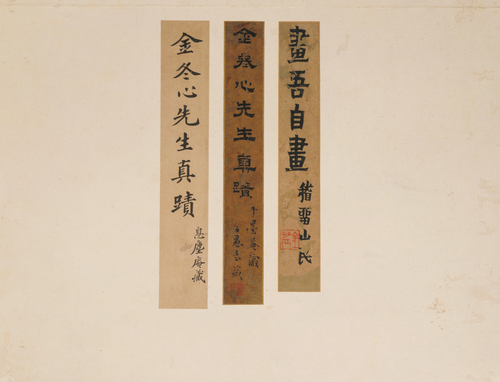 畫吾自畫
稽留山民
金冬心先生真蹟
金冬心先生真蹟
息塵庵藏